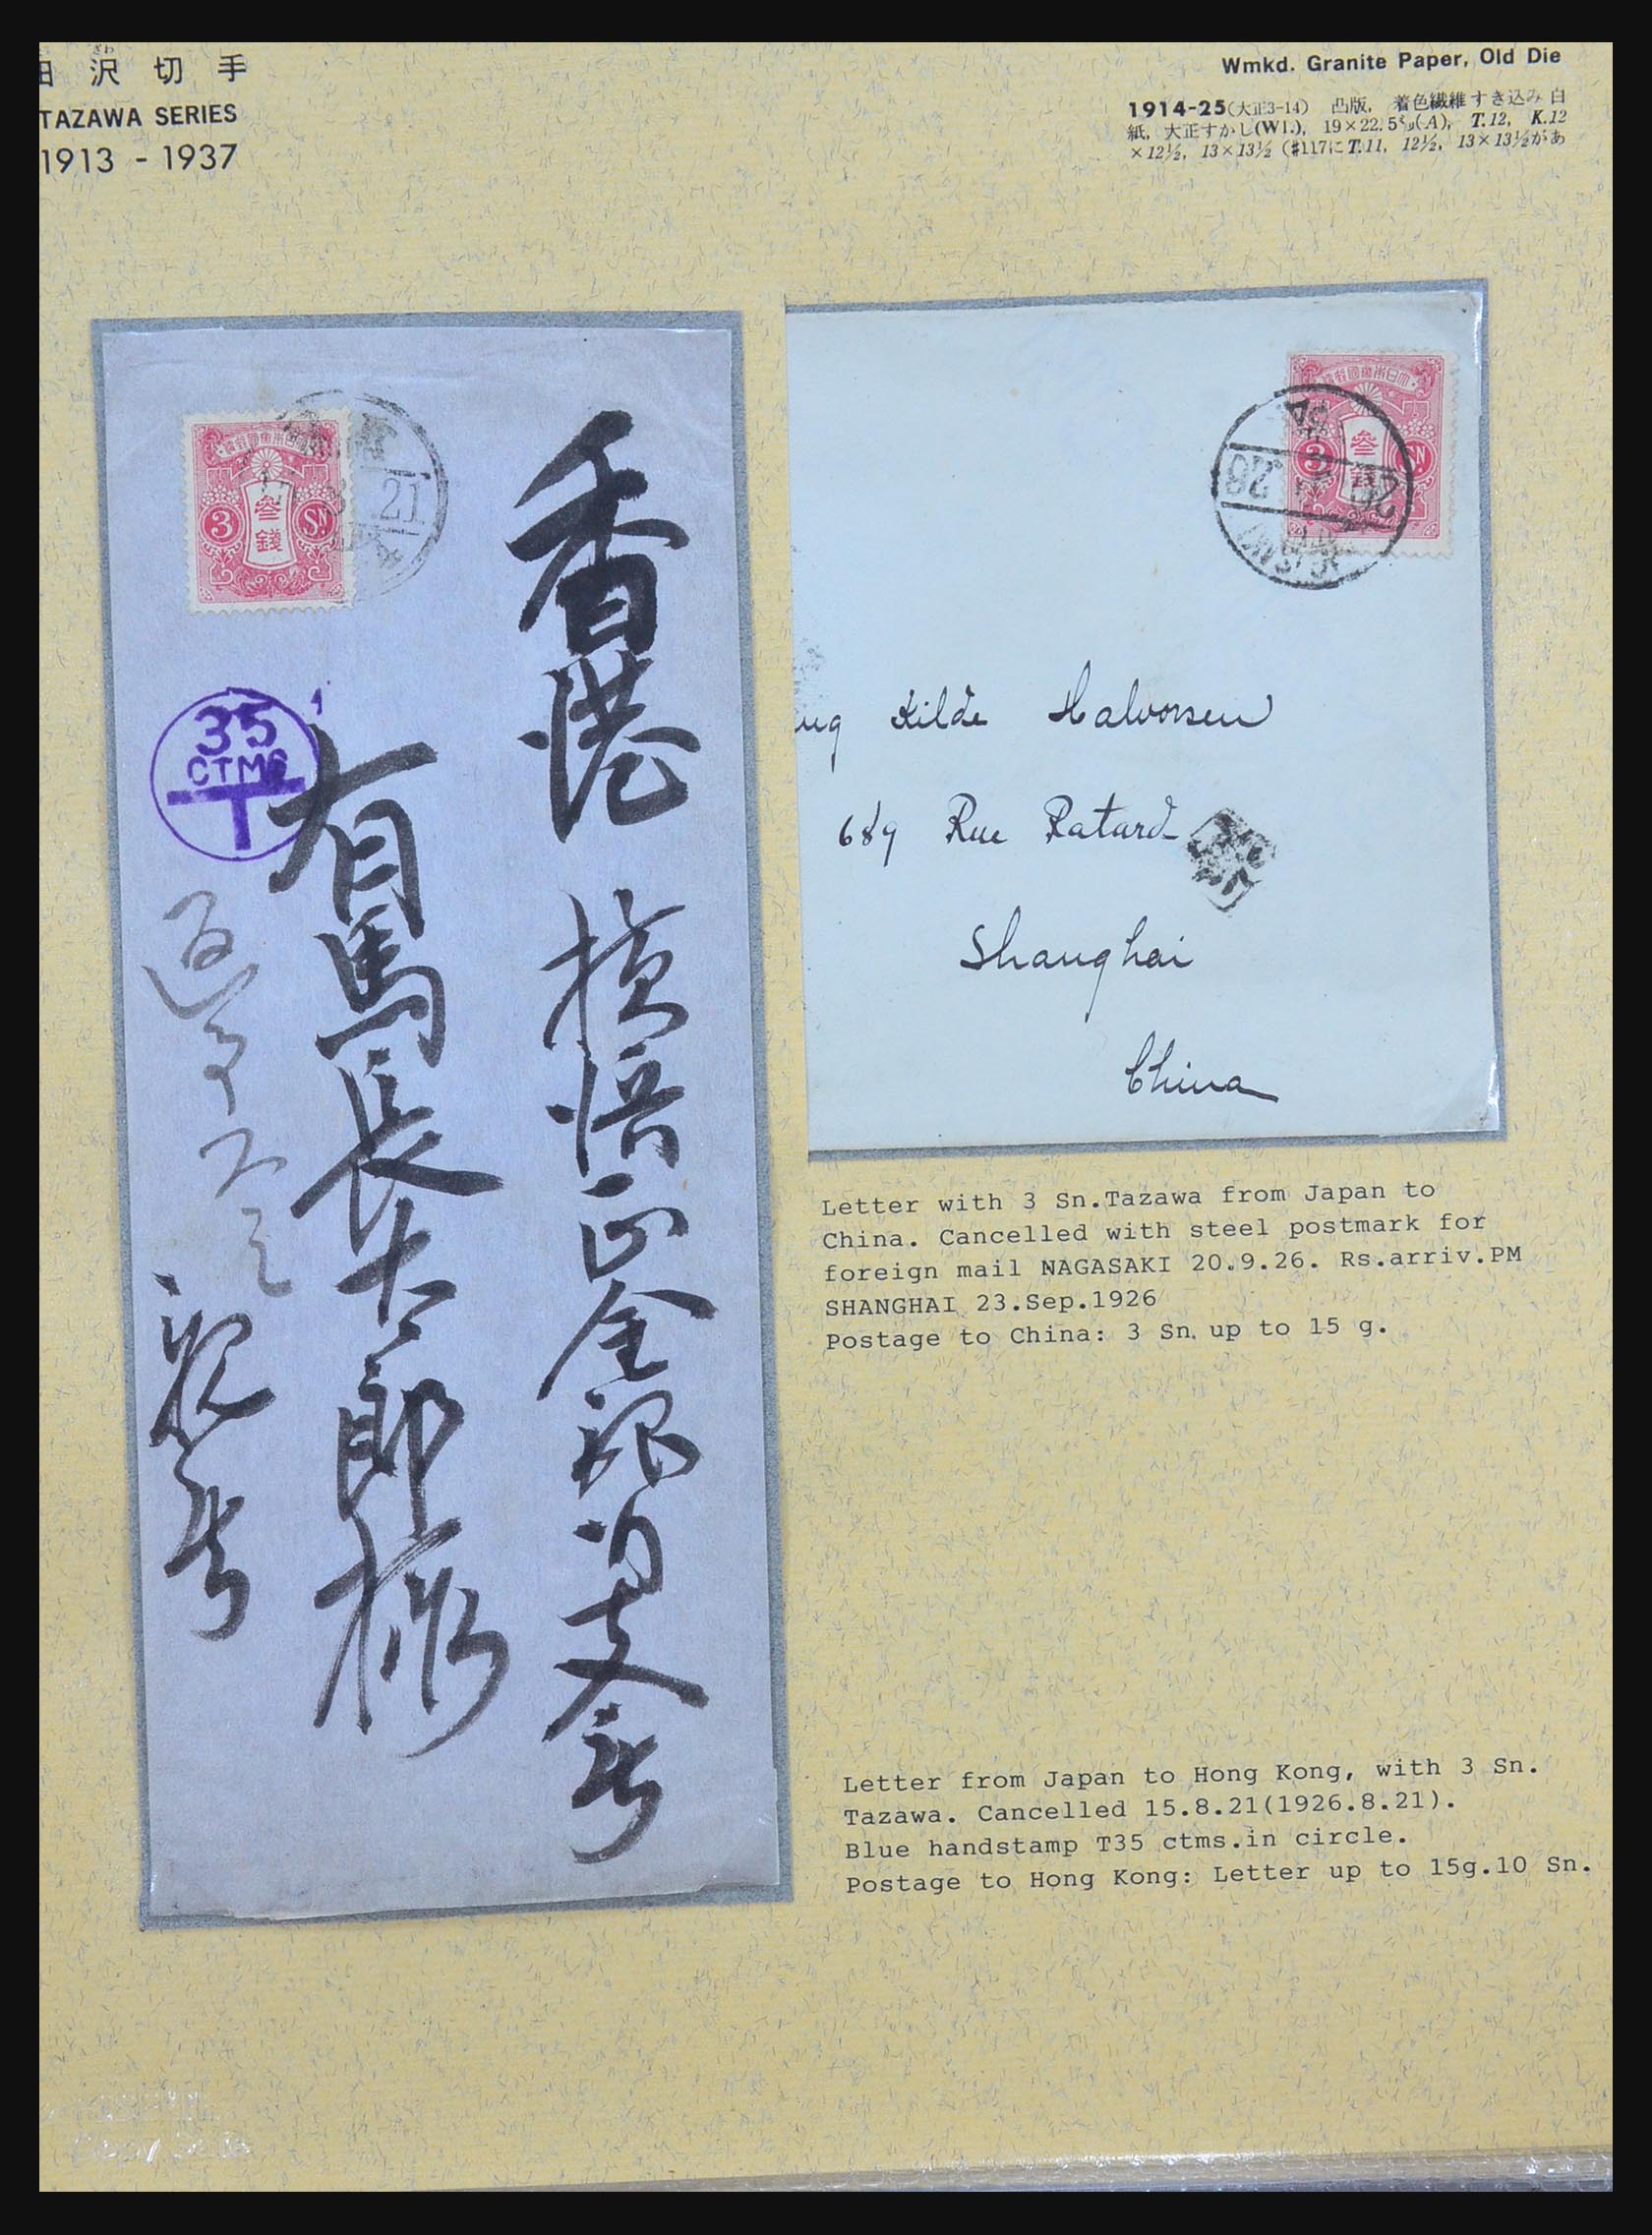 沢切手
TAZAWA SERIES
1913 - 1937
Wmkd. Granite Paper, Old Die
1914-25(大正3-14) 凸版, 着色繊維すき込み白
紙, 大正すかし(W1.), 19×22.5㍉(A), T.12, K.12
×12½, 13×13½ (#117にT.11, 12½, 13×13½があ
参
錢
3
SN
21
35
CTMS
T
香港 横浜正金銀行支店
有馬長太郎様
参
錢
3
SN
26
Kilde Halvorsen
689 Rue Ratard
Shanghai
China
Letter with 3 Sn.Tazawa from Japan to
China. Cancelled with steel postmark for
foreign mail NAGASAKI 20.9.26. Rs.arriv.PM
SHANGHAI 23.Sep.1926
Postage to China: 3 Sn. up to 15 g.
Letter from Japan to Hong Kong, with 3 Sn.
Tazawa. Cancelled 15.8.21(1926.8.21).
Blue handstamp T35 ctms.in circle.
Postage to Hong Kong: Letter up to 15g.10 Sn.